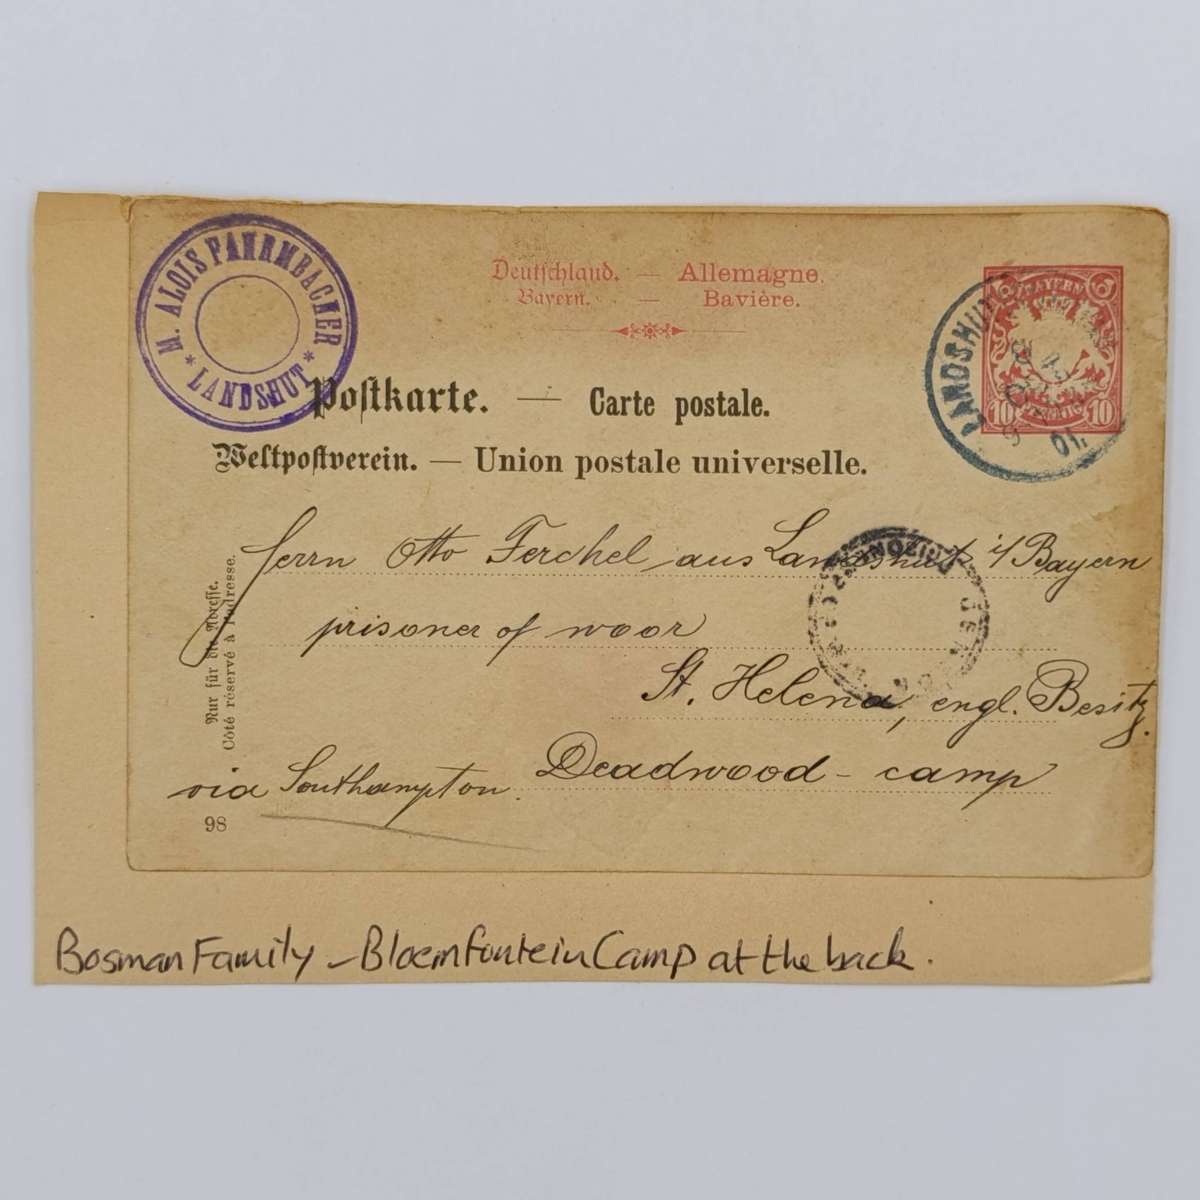 M. ALOIS FAHRMBACHER
* LANDSHUT *
Deutschland. — Allemagne.
Bayern. — Bavière.
BAYERN
10 PFENNIG 10
LANDSHUT
01.
Postkarte. — Carte postale.
Weltpostverein. — Union postale universelle.
Nur für die Adresse.
Côté réservé à l'adresse.
Herrn Otto Ferchel aus Landshut i/Bayern
prisoner of woor
St. Helena, engl. Besitz.
Deadwood - camp
via Southampton.
98
Bosman Family - Bloemfontein Camp at the back.